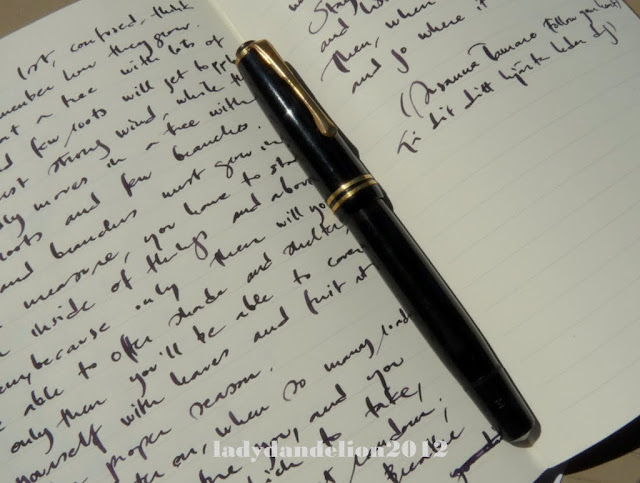 lost, confused, think
remember how they grow.
a tree with lots of
and few roots will get
strong wind, while the
moves in a tree with
roots and few branches.
and branches must grow in
measure, you have to
inside of things and above
because only then will you
able to offer shade and shelter
only then you'll be able to cover
yourself with leaves and fruit at
proper season.
on, when so many roads
you, and you
to take,
random,
breathe
and
Then, when
and go where it
(Susanna Tamaro Follow your heart)
dit ditt hjärta leder dig)
M
ladydandelion2012